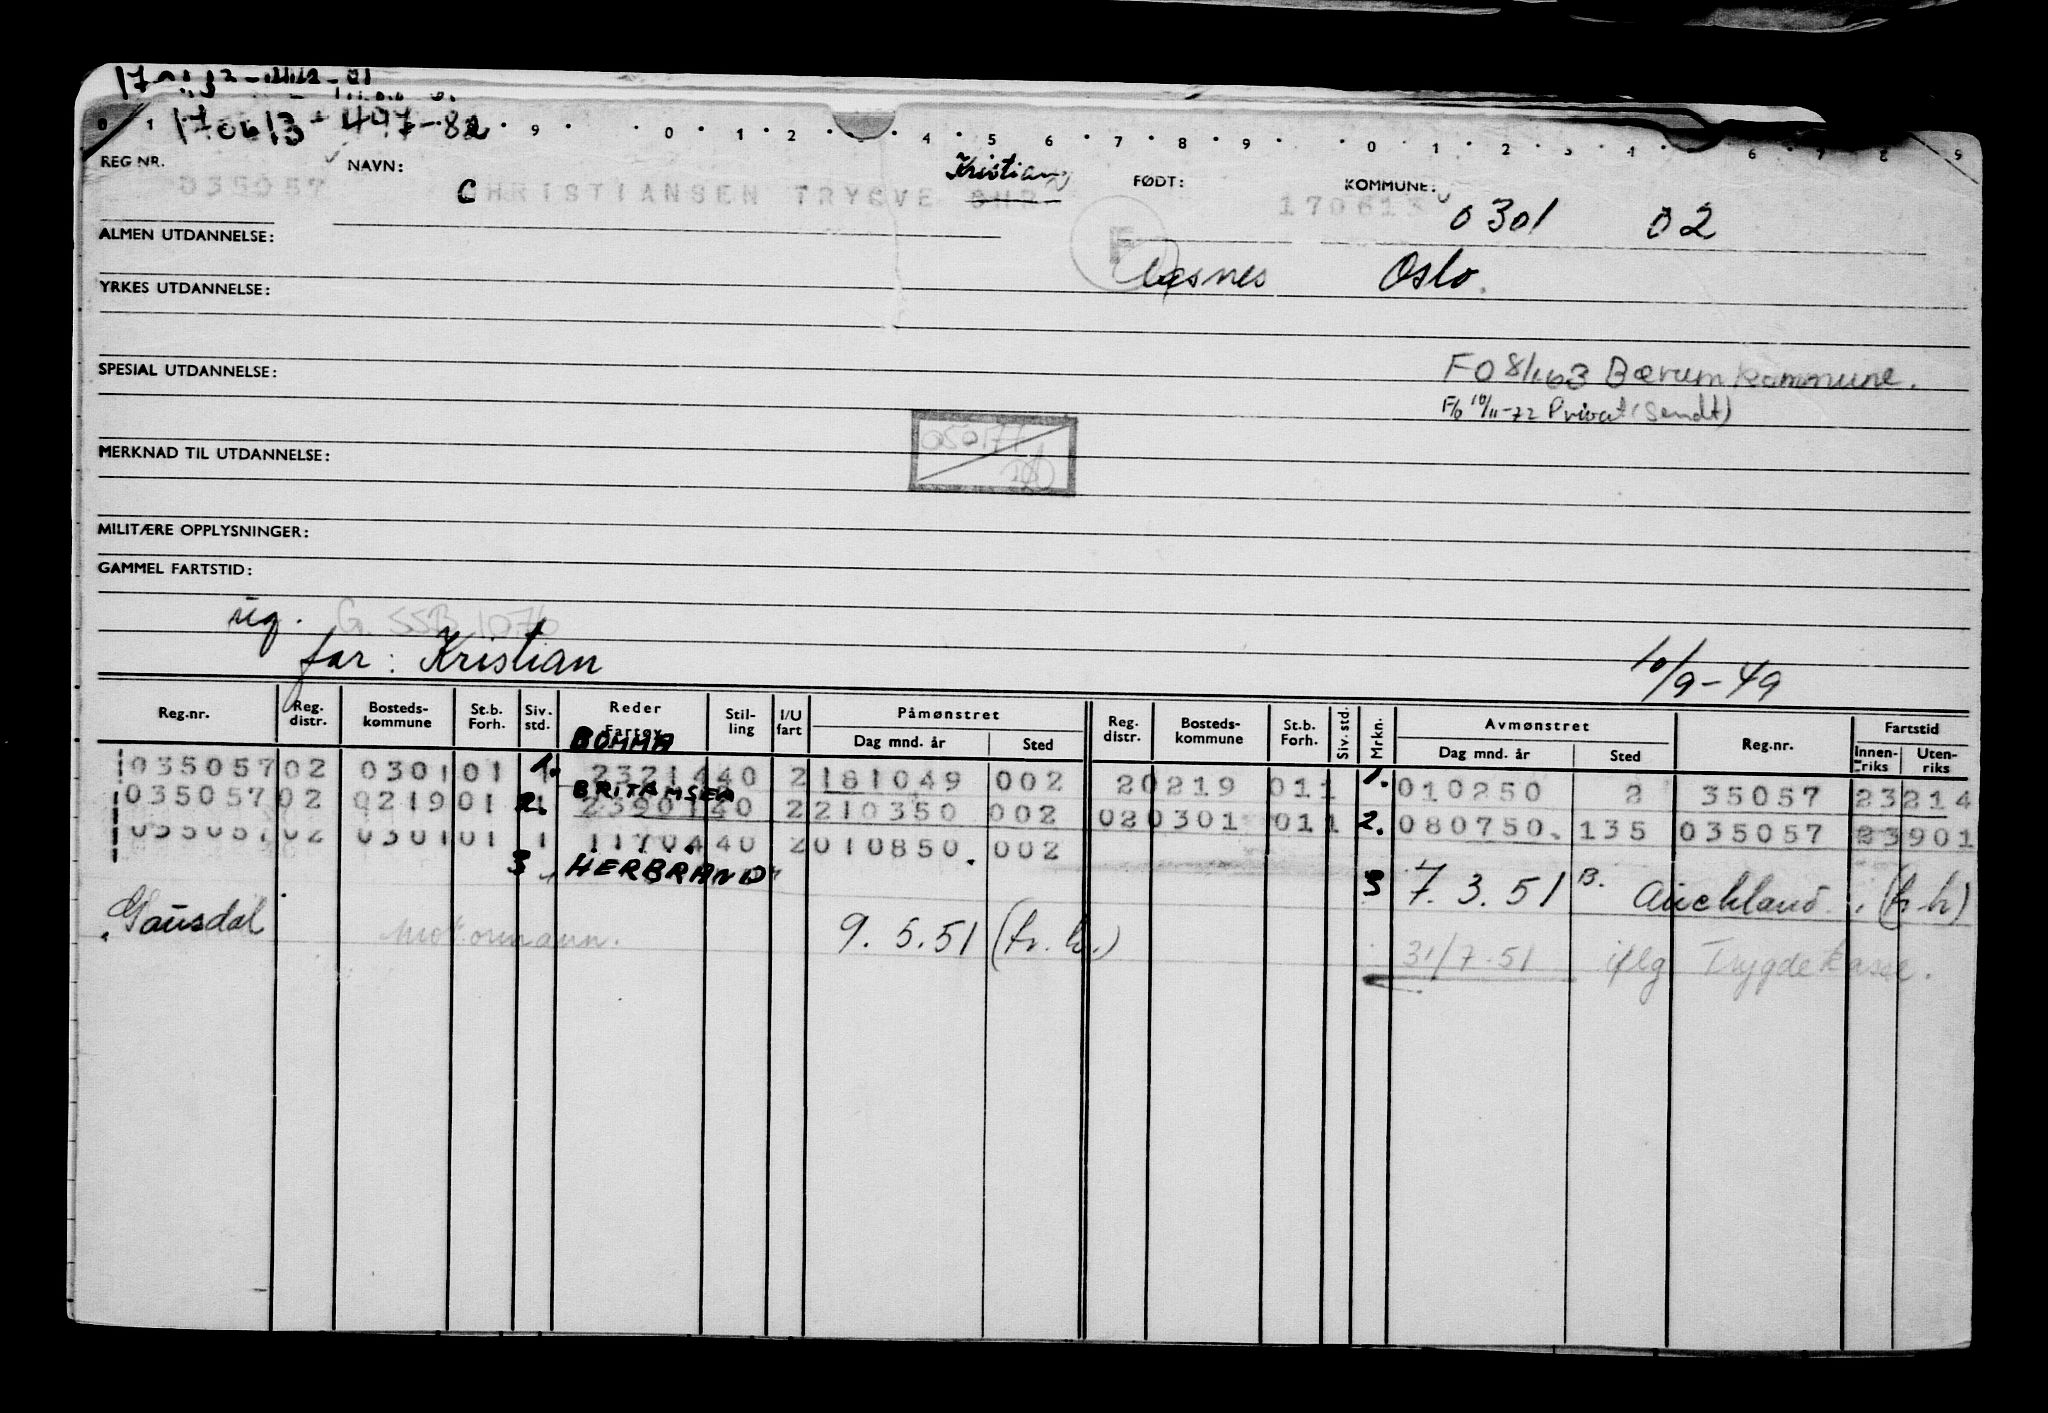 170613-497-82
REG NR. NAVN: Kristian FØDT: KOMMUNE:
035057 CHRISTIANSEN TRYGVE CHR 170613 0301 02
ALMEN UTDANNELSE:
F Oslo.
YRKES UTDANNELSE:
SPESIAL UTDANNELSE: Bærum kommune.
F/o 10/11-72 Privat (sendt)
MERKNAD TIL UTDANNELSE:
MILITÆRE OPPLYSNINGER:
GAMMEL FARTSTID:
ug. G. SSB 1070
far: Kristian 10/9-49
Reg.nr. Reg. distr. Bosteds-kommune St.b. Forh. Siv. std. Reder Fartøy Stil-ling I/U fart Påmønstret Dag mnd. år Sted Reg. distr. Bosteds-kommune St.b. Forh. Siv. std. Mrkn. Avmønstret Dag mnd. år Sted Reg.nr. Fartstid Innen-riks Uten-riks
BOMMA
035057 02 0301 01 1 1. 23214 40 2 181049 002 20219 011 1. 010250 2 35057 23214
BRITAMSEA
035057 02 0219 01 1 2. 23901 20 2 210350 002 020301 011 2. 080750. 135 035057 23901
035057 02 0301 01 1 11704 40 2 010850. 002
3 "HERBRAND" 3 7.3.51 B. Auckland. (fr.h)
Gausdal Motormann. 9.5.51 (fr.h.)
31/7-51 iflg Trygdekasse.